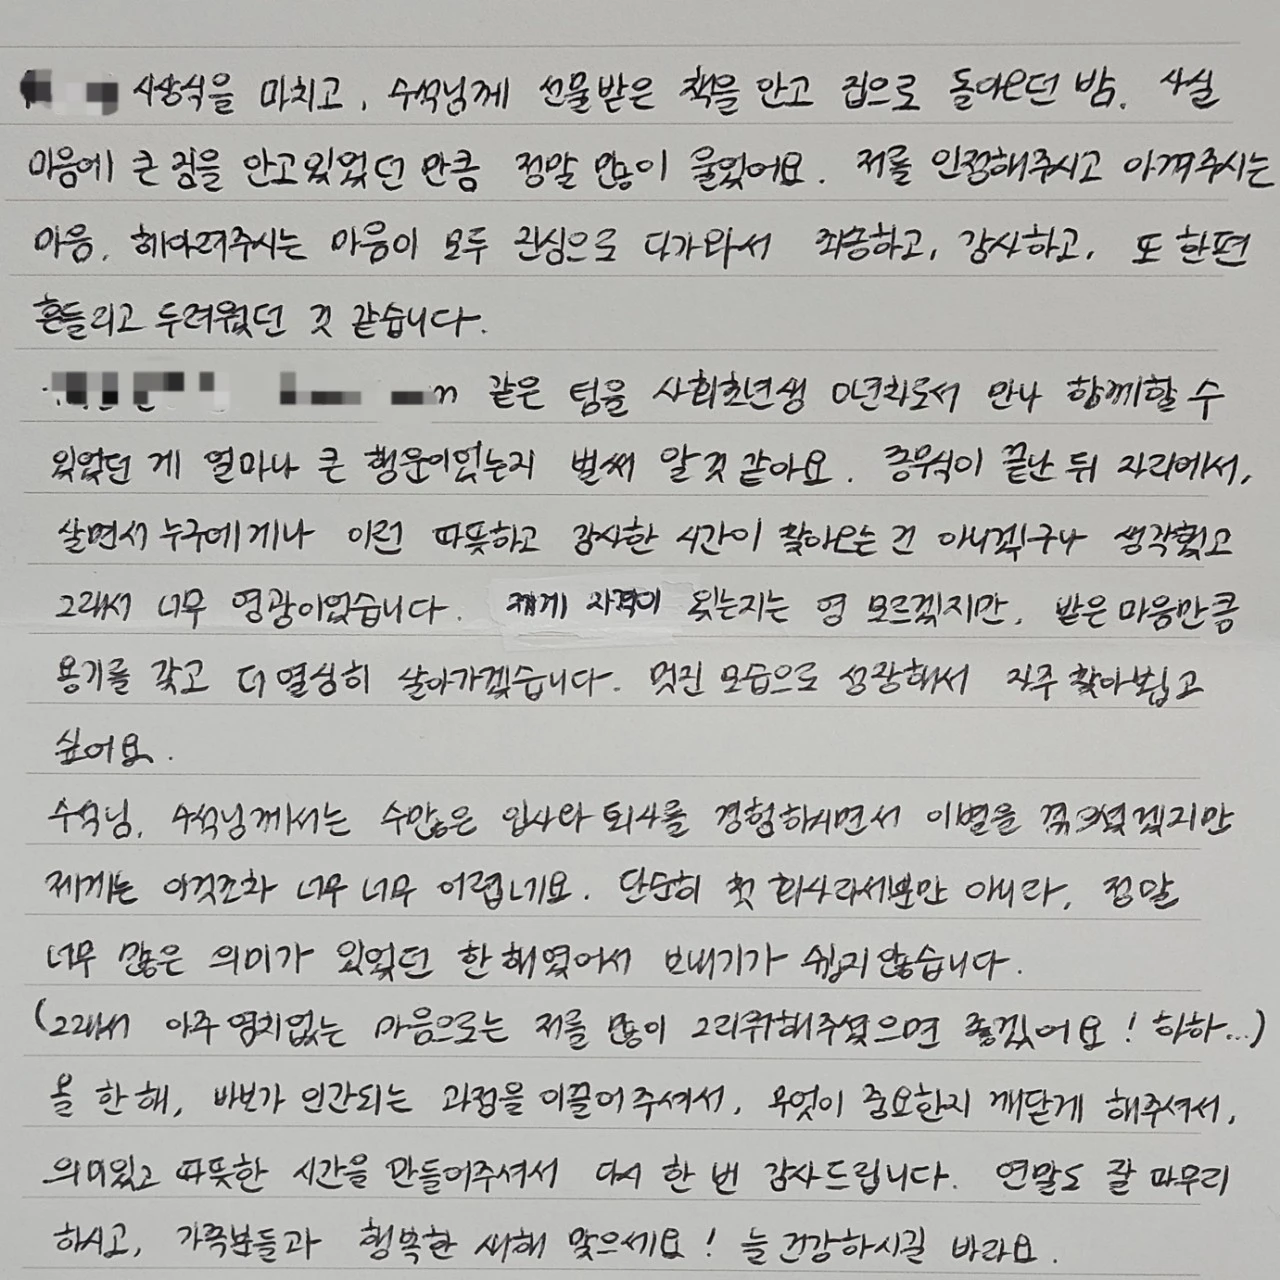 시상식을 마치고, 수석님께 선물받은 책을 안고 집으로 돌아오던 밤. 사실
마음에 큰 짐을 안고있었던 만큼 정말 많이 울었어요. 저를 인정해주시고 아껴주시는
마음, 헤아려주시는 마음이 모두 진심으로 다가와서 죄송하고, 감사하고, 또 한편
흔들리고 두려웠던 것 같습니다.
같은 팀을 사회초년생 0년차로서 만나 함께할 수
있었던 게 얼마나 큰 행운이었는지 벌써 알 것 같아요. 종무식이 끝난 뒤 자리에서,
살면서 누구에게나 이런 따뜻하고 감사한 시간이 찾아오는 건 아니겠구나 생각했고
그래서 너무 영광이었습니다. 제게 자격이 있는지는 영 모르겠지만, 받은 마음만큼
용기를 갖고 더 열심히 살아가겠습니다. 멋진 모습으로 성장해서 자주 찾아뵙고
싶어요.
수석님, 수석님께서는 수많은 입사와 퇴사를 경험하시면서 이별을 겪으셨겠지만
제게는 아직조차 너무 너무 어렵네요. 단순히 첫 회사라서뿐만 아니라, 정말
너무 많은 의미가 있었던 한 해였어서 보내기가 쉽지 않습니다.
(그래서 아주 염치없는 마음으로는 저를 많이 그리워해주셨으면 좋겠어요! 하하...)
올 한 해, 바보가 인간되는 과정을 이끌어 주셔서, 무엇이 중요한지 깨닫게 해주셔서,
의미있고 따뜻한 시간을 만들어주셔서 다시 한 번 감사드립니다. 연말도 잘 마무리
하시고, 가족분들과 행복한 새해 맞으세요! 늘 건강하시길 바라요.